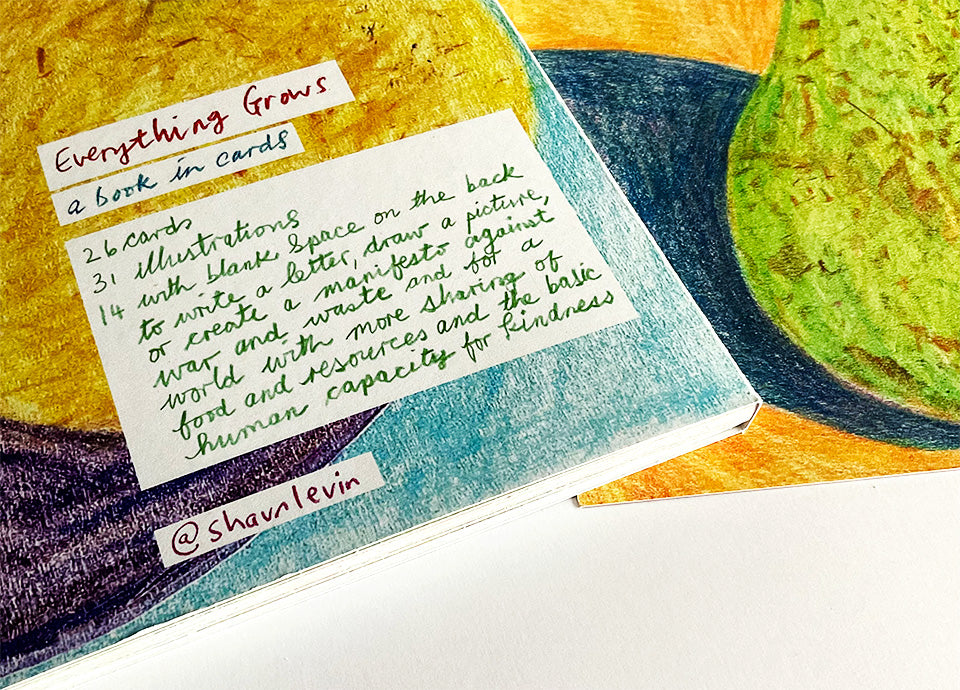 Everything Grows
a book in cards
26 cards
31 illustrations
14 with blank space on the back
to write a letter, draw a picture,
or create a manifesto against
war and waste and for a
world with more sharing of
food and resources and the basic
human capacity for kindness
@shaunlevin